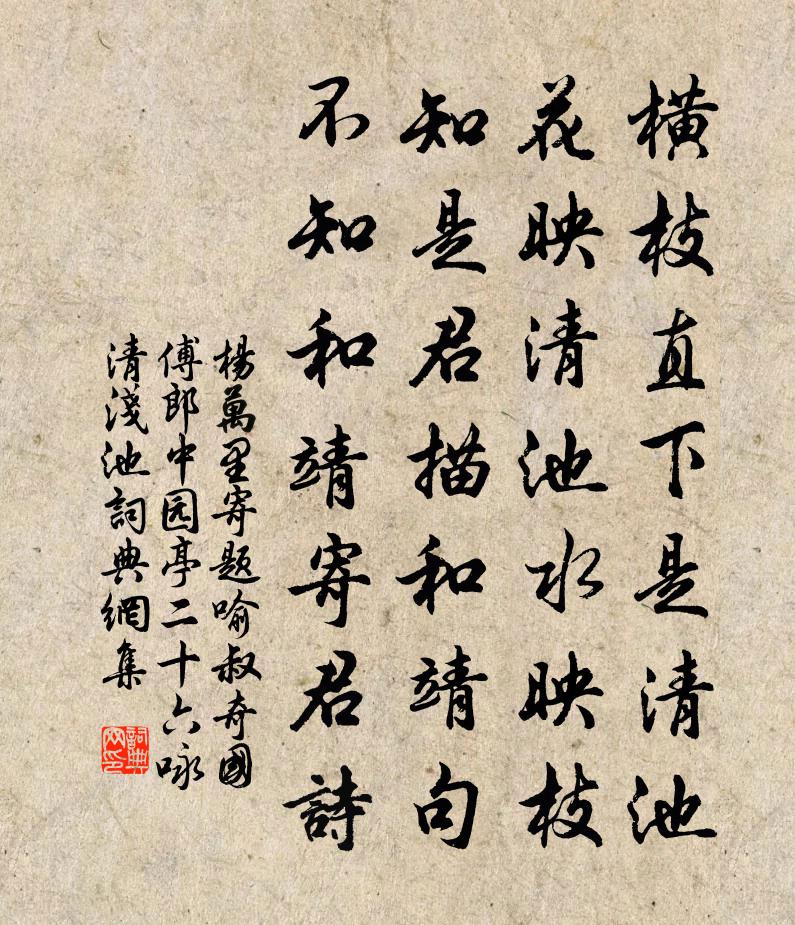 橫枝直下是清池
花映清池水映枝
知是君描和靖句
不知和靖寄君詩
楊萬里寄題喻叔奇國
傅郎中园亭二十六咏
清淺池詞典網集
詞典
网印